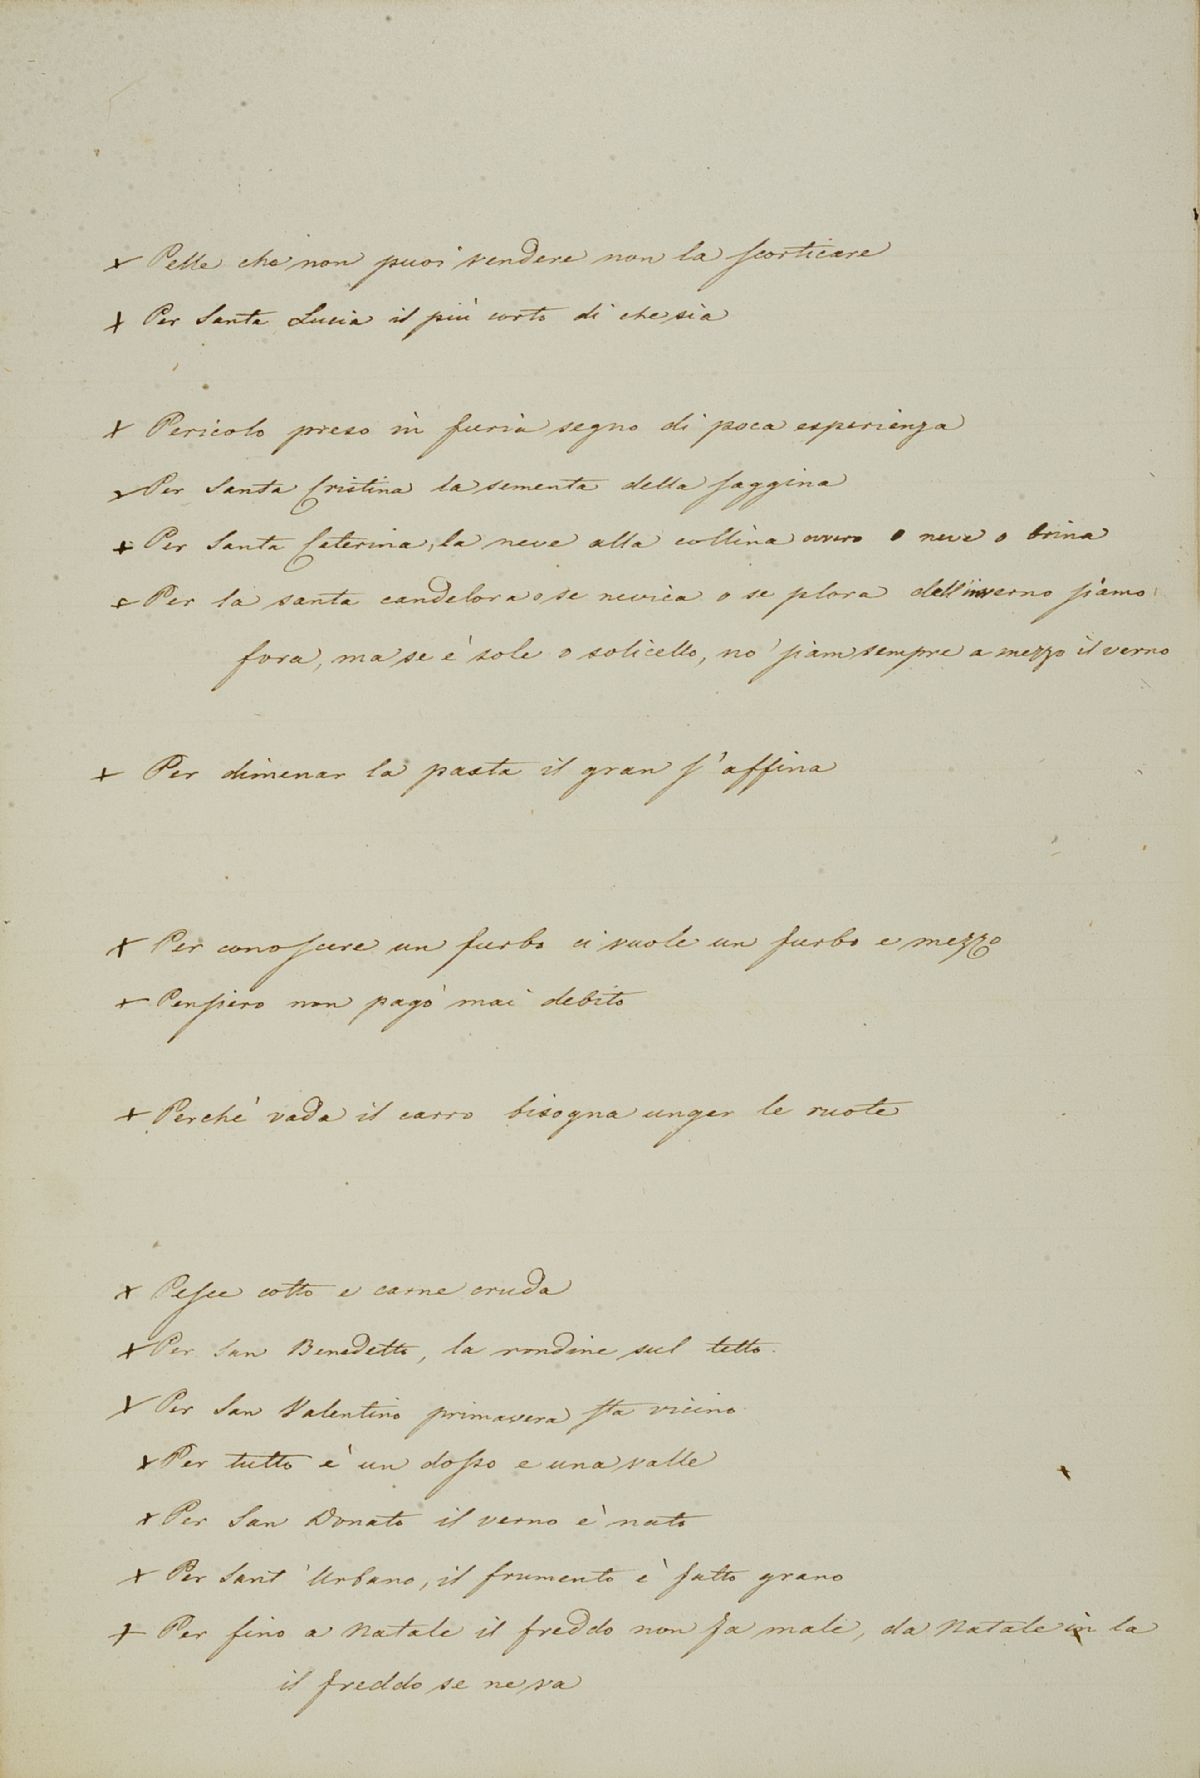 + Pelle che non puoi vendere non la scorticare
+ Per Santa Lucia il più corto di che sia
+ Pericolo preso in furia segno di poca esperienza
+ Per Santa Cristina la sementa della saggina
+ Per Santa Caterina, la neve alla collina ovvero o neve o brina
+ Per la santa candelora o se nevica o se plora dell'inverno siamo
fora, ma se è sole o solicello, no' siam sempre a mezzo il verno
+ Per dimenar la pasta il gran s'affina
+ Per conoscere un furbo ci vuole un furbo e mezzo
+ Pensiero non pagò mai debito
+ Perchè vada il carro bisogna unger le ruote
+ Pesce cotto e carne cruda
+ Per San Benedetto, la rondine sul tetto.
+ Per San Valentino primavera sta vicino
+ Per tutto è un dosso e una valle
+ Per San Donato il verno è nato
+ Per Sant'Urbano, il frumento è fatto grano
+ Per fino a Natale il freddo non fa male, da Natale in la
il freddo se ne va